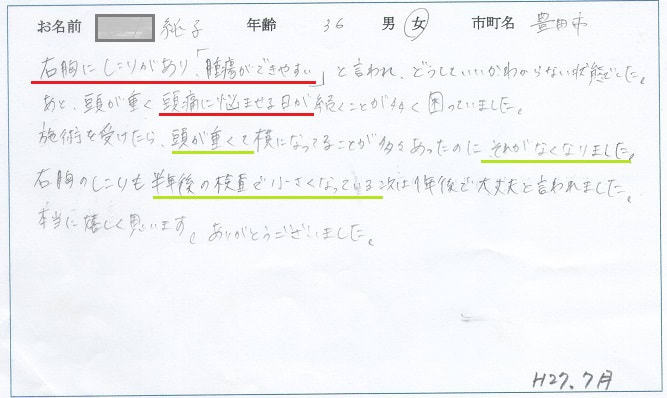 お名前 純子 年齢 36 男 女 市町名 豊田市
右胸にしこりがあり、「腫瘍ができやすい」と言われ、どうしていいかわからない状態でした。
あと、頭が重く頭痛に悩ませる日が続くことが多く困っていました。
施術を受けたら、頭が重くて横になってることが多々あったのにそれがなくなりました。
右胸のしこりも半年後の検査で小さくなっている次は1年後で大丈夫と言われました。
本当に嬉しく思います。ありがとうございました。
H27.7月